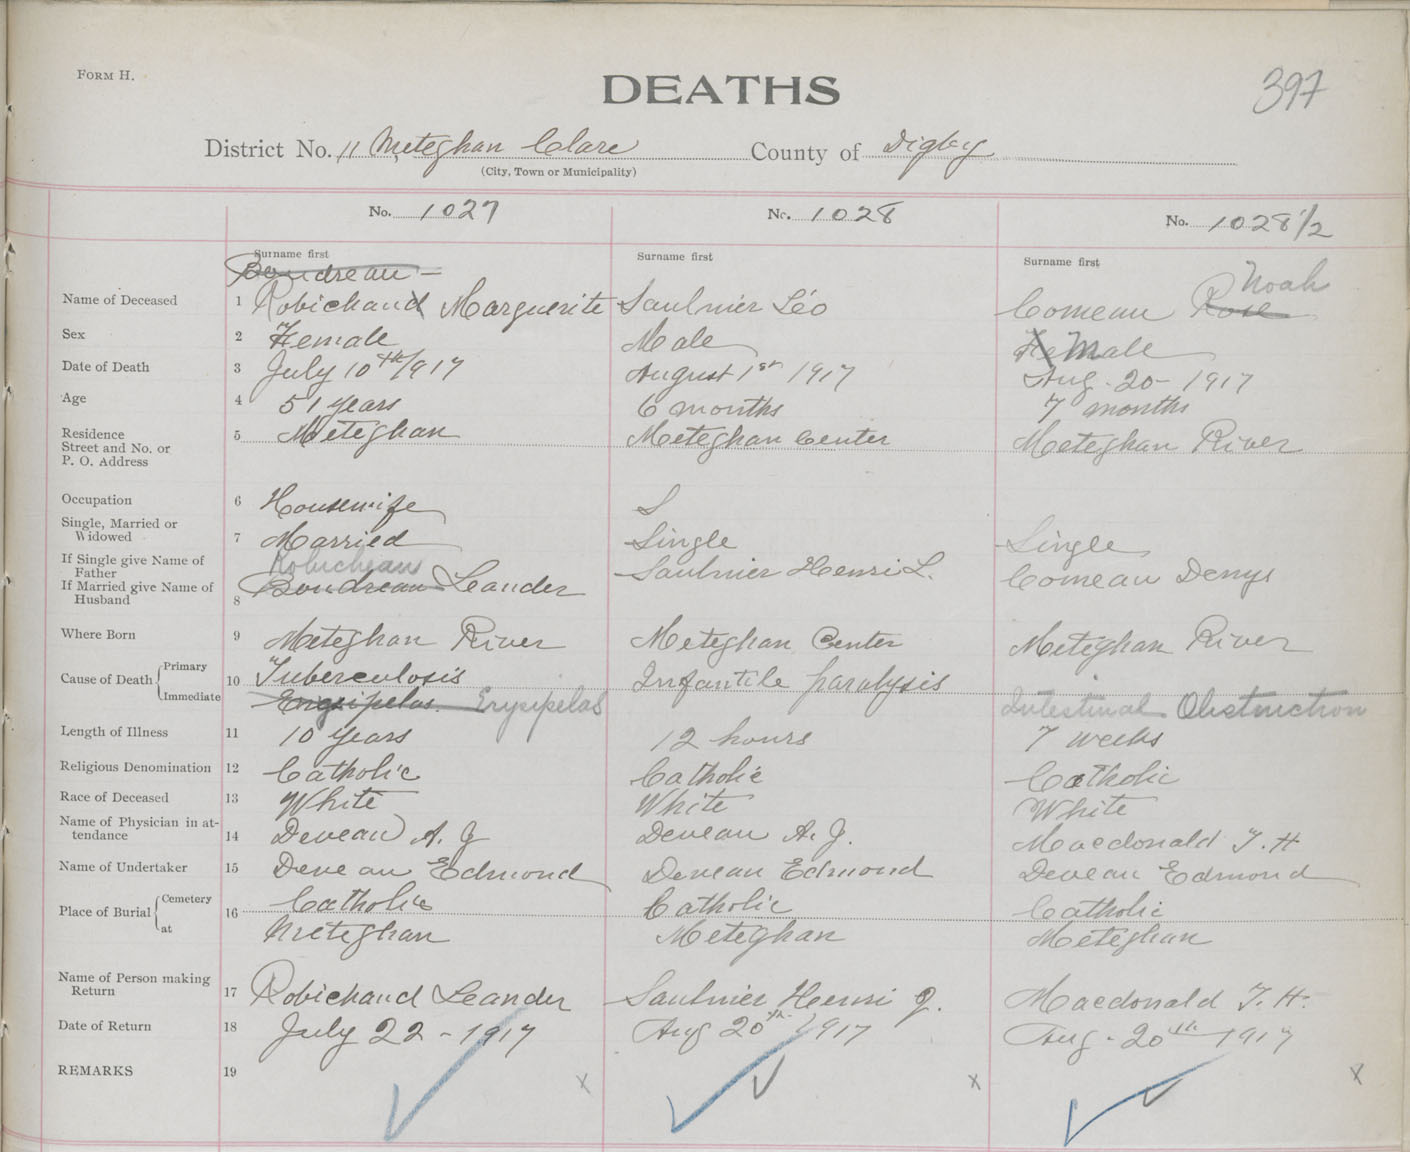 FORM H.
DEATHS
397
District No. 11 Meteghan Clare County of Digby
(City, Town or Municipality)
No. 1027 No. 1028 No. 1028 1/2
Surname first Surname first Surname first
Boudreau - Noah
Name of Deceased 1 Robichaud Marguerite Saulnier Léo Comeau Rose
Sex 2 Female Male Fe Male
Date of Death 3 July 10th/1917 August 1st 1917 Aug. 20 - 1917
Age 4 51 years 6 months 7 months
Residence
Street and No. or
P. O. Address
5 Meteghan Meteghan Center Meteghan River
Occupation 6 Housewife S
Single, Married or
Widowed 7 Married Single Single
If Single give Name of
Father Robicheau Saulnier Henri L. Comeau Denys
If Married give Name of
Husband 8 Boudreau Leander
Where Born 9 Meteghan River Meteghan Center Meteghan River
Cause of Death Primary 10 Tuberculosis Infantile paralysis
Immediate Erysipelas. Erysipelas Intestinal Obstruction
Length of Illness 11 10 years 12 hours 7 weeks
Religious Denomination 12 Catholic Catholic Catholic
Race of Deceased 13 White White White
Name of Physician in at-
tendance 14 Deveau A. J Deveau A. J. Macdonald T. H
Name of Undertaker 15 Deveau Edmond Deveau Edmond Deveau Edmond
Place of Burial Cemetery 16 Catholic Catholic Catholic
at Meteghan Meteghan Meteghan
Name of Person making
Return 17 Robichaud Leander Saulnier Henri J. Macdonald T. H.
Date of Return 18 July 22 - 1917 Aug 20th 1917 Aug. 20th 1917
REMARKS 19 x x x